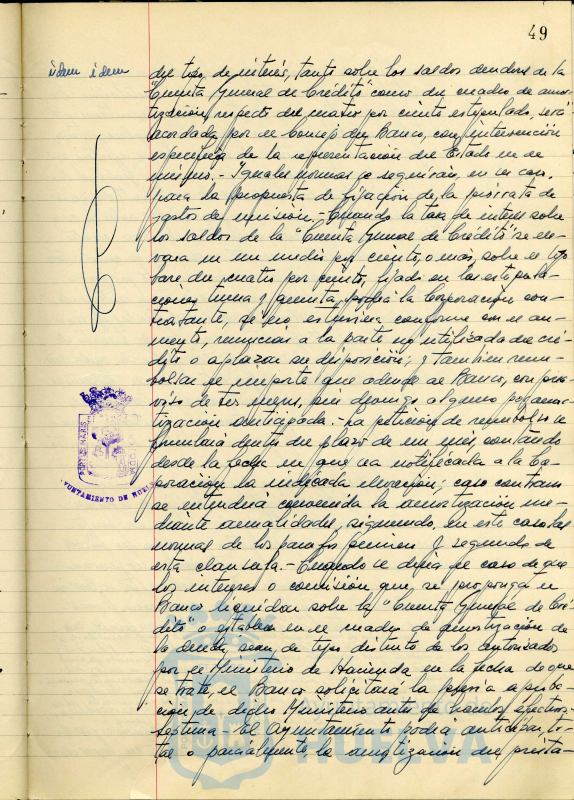 49
idem idem
del tipo de interés, tanto sobre los saldos deudores de la
"Cuenta General de Crédito" como del cuadro de amor-
tización, respecto del cuatro por ciento estipulado, será
acordada por el Consejo del Banco, con intervención
específica de la representación del Estado en el
mismo.- Iguales normas se seguirán, en su caso,
para la propuesta de fijación de la prórrata de
gastos de emisión.- Cuando la tasa de interés sobre
los saldos de la "Cuenta General de Crédito" se ele-
vara en un medio por ciento, o más, sobre el tipo
base del cuatro por ciento, fijado en las estipula-
ciones tercera y quinta, podrá la Corporación con-
tratante, si no estuviera conforme con el au-
mento, renunciar a la parte no utilizada del cré-
dito o aplazar su disposición; y también reem-
bolsar el importe que adeude al Banco, con prea-
viso de tres meses, sin devengo alguno por amor-
tización anticipada.- La petición de reembolso se
formulará dentro del plazo de un mes, contando
desde la fecha en que sea notificada a la Cor-
poración la indicada elevación; caso contrario
se entenderá convenida la amortización me-
diante anualidades, siguiendo, en este caso las
normas de los párrafos primero y segundo de
esta cláusula.- Cuando se diera el caso de que
los intereses o comisión que se proponga el
Banco liquidar sobre la "Cuenta General de Cré-
dito" o establecer en el cuadro de amortización de
la deuda, sean de tipo distinto de los autorizados
por el Ministerio de Hacienda en la fecha de que
se trate, el Banco solicitará la previa aproba-
ción de dicho Ministerio antes de hacerlos efectivos.
Séptima.- El Ayuntamiento podrá anticipar, to-
tal o parcialmente la amortización del présta-
PORTUS MARIS
AYUNTAMIENTO DE HUELVA
HUELVA